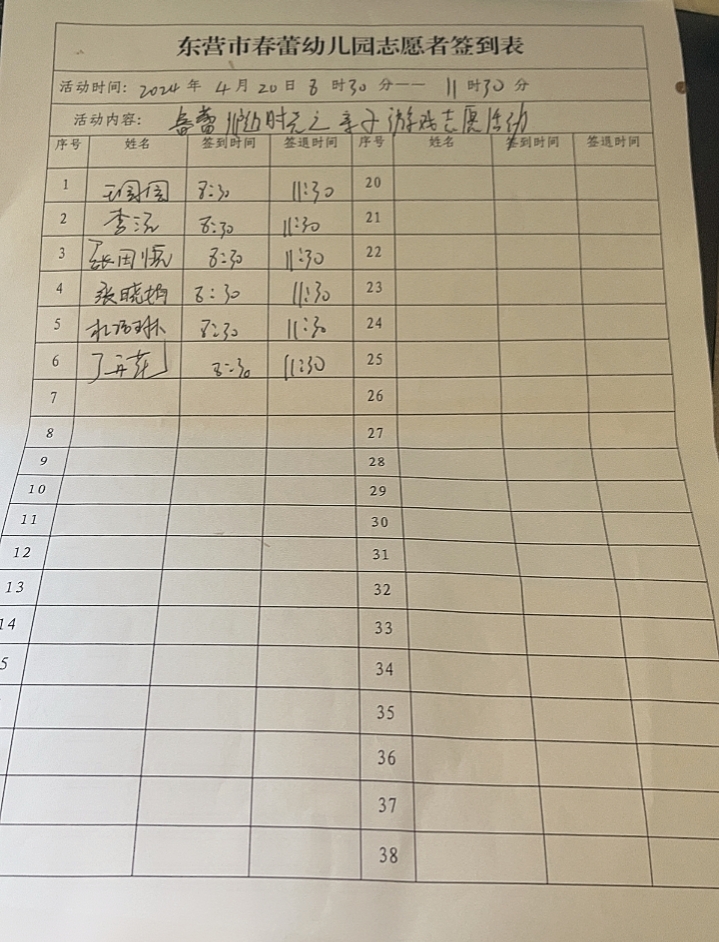 东营市春蕾幼儿园志愿者签到表
活动时间: 2024 年 4 月 20 日 8 时 30 分—— 11 时 30 分
活动内容: 春蕾 时光之亲子游戏志愿活动
序号 姓名 签到时间 签退时间 序号 姓名 签到时间 签退时间
1 8:30 11:30 20
2 李 8:30 11:30 21
3 张 8:30 11:30 22
4 张晓娟 8:30 11:30 23
5 8:30 11:30 24
6 丁 8:30 11:30 25
7 26
8 27
9 28
10 29
11 30
12 31
13 32
14 33
5 34
35
36
37
38